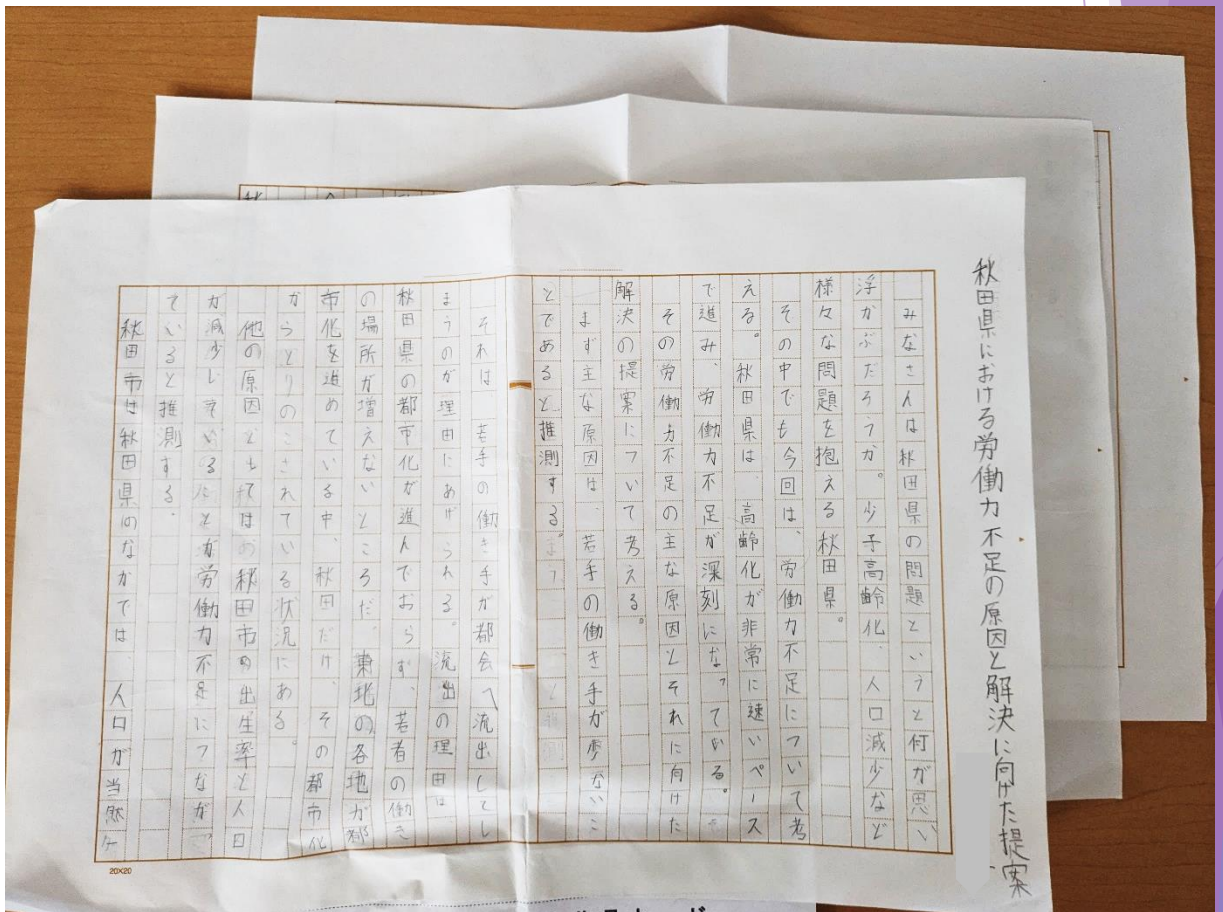 秋田県における労働力不足の原因と解決に向けた提案
みなさんは秋田県の問題というと何が思い
浮かぶだろうか。少子高齢化、人口減少など
様々な問題を抱える秋田県。
その中でも今回は、労働力不足について考
える。秋田県は、高齢化が非常に速いペース
で進み、労働力不足が深刻になっている。
その労働力不足の主な原因とそれに向けた
解決の提案について考える。
まず主な原因は、若手の働き手が少ないこ
とであると推測する。
それは、若手の働き手が都会へ流出してし
まうのが理由にあげられる。流出の理由は、
秋田県の都市化が進んでおらず、若者の働き
の場所が増えないところだ。東北の各地が都
市化を進めている中、秋田だけ、その都市化
からとりのこされている状況にある。
他の原因としては、秋田市の出生率と人口
が減少していることが労働力不足につながっ
ていると推測する。
秋田市は秋田県のなかでは、人口が当然
20×20